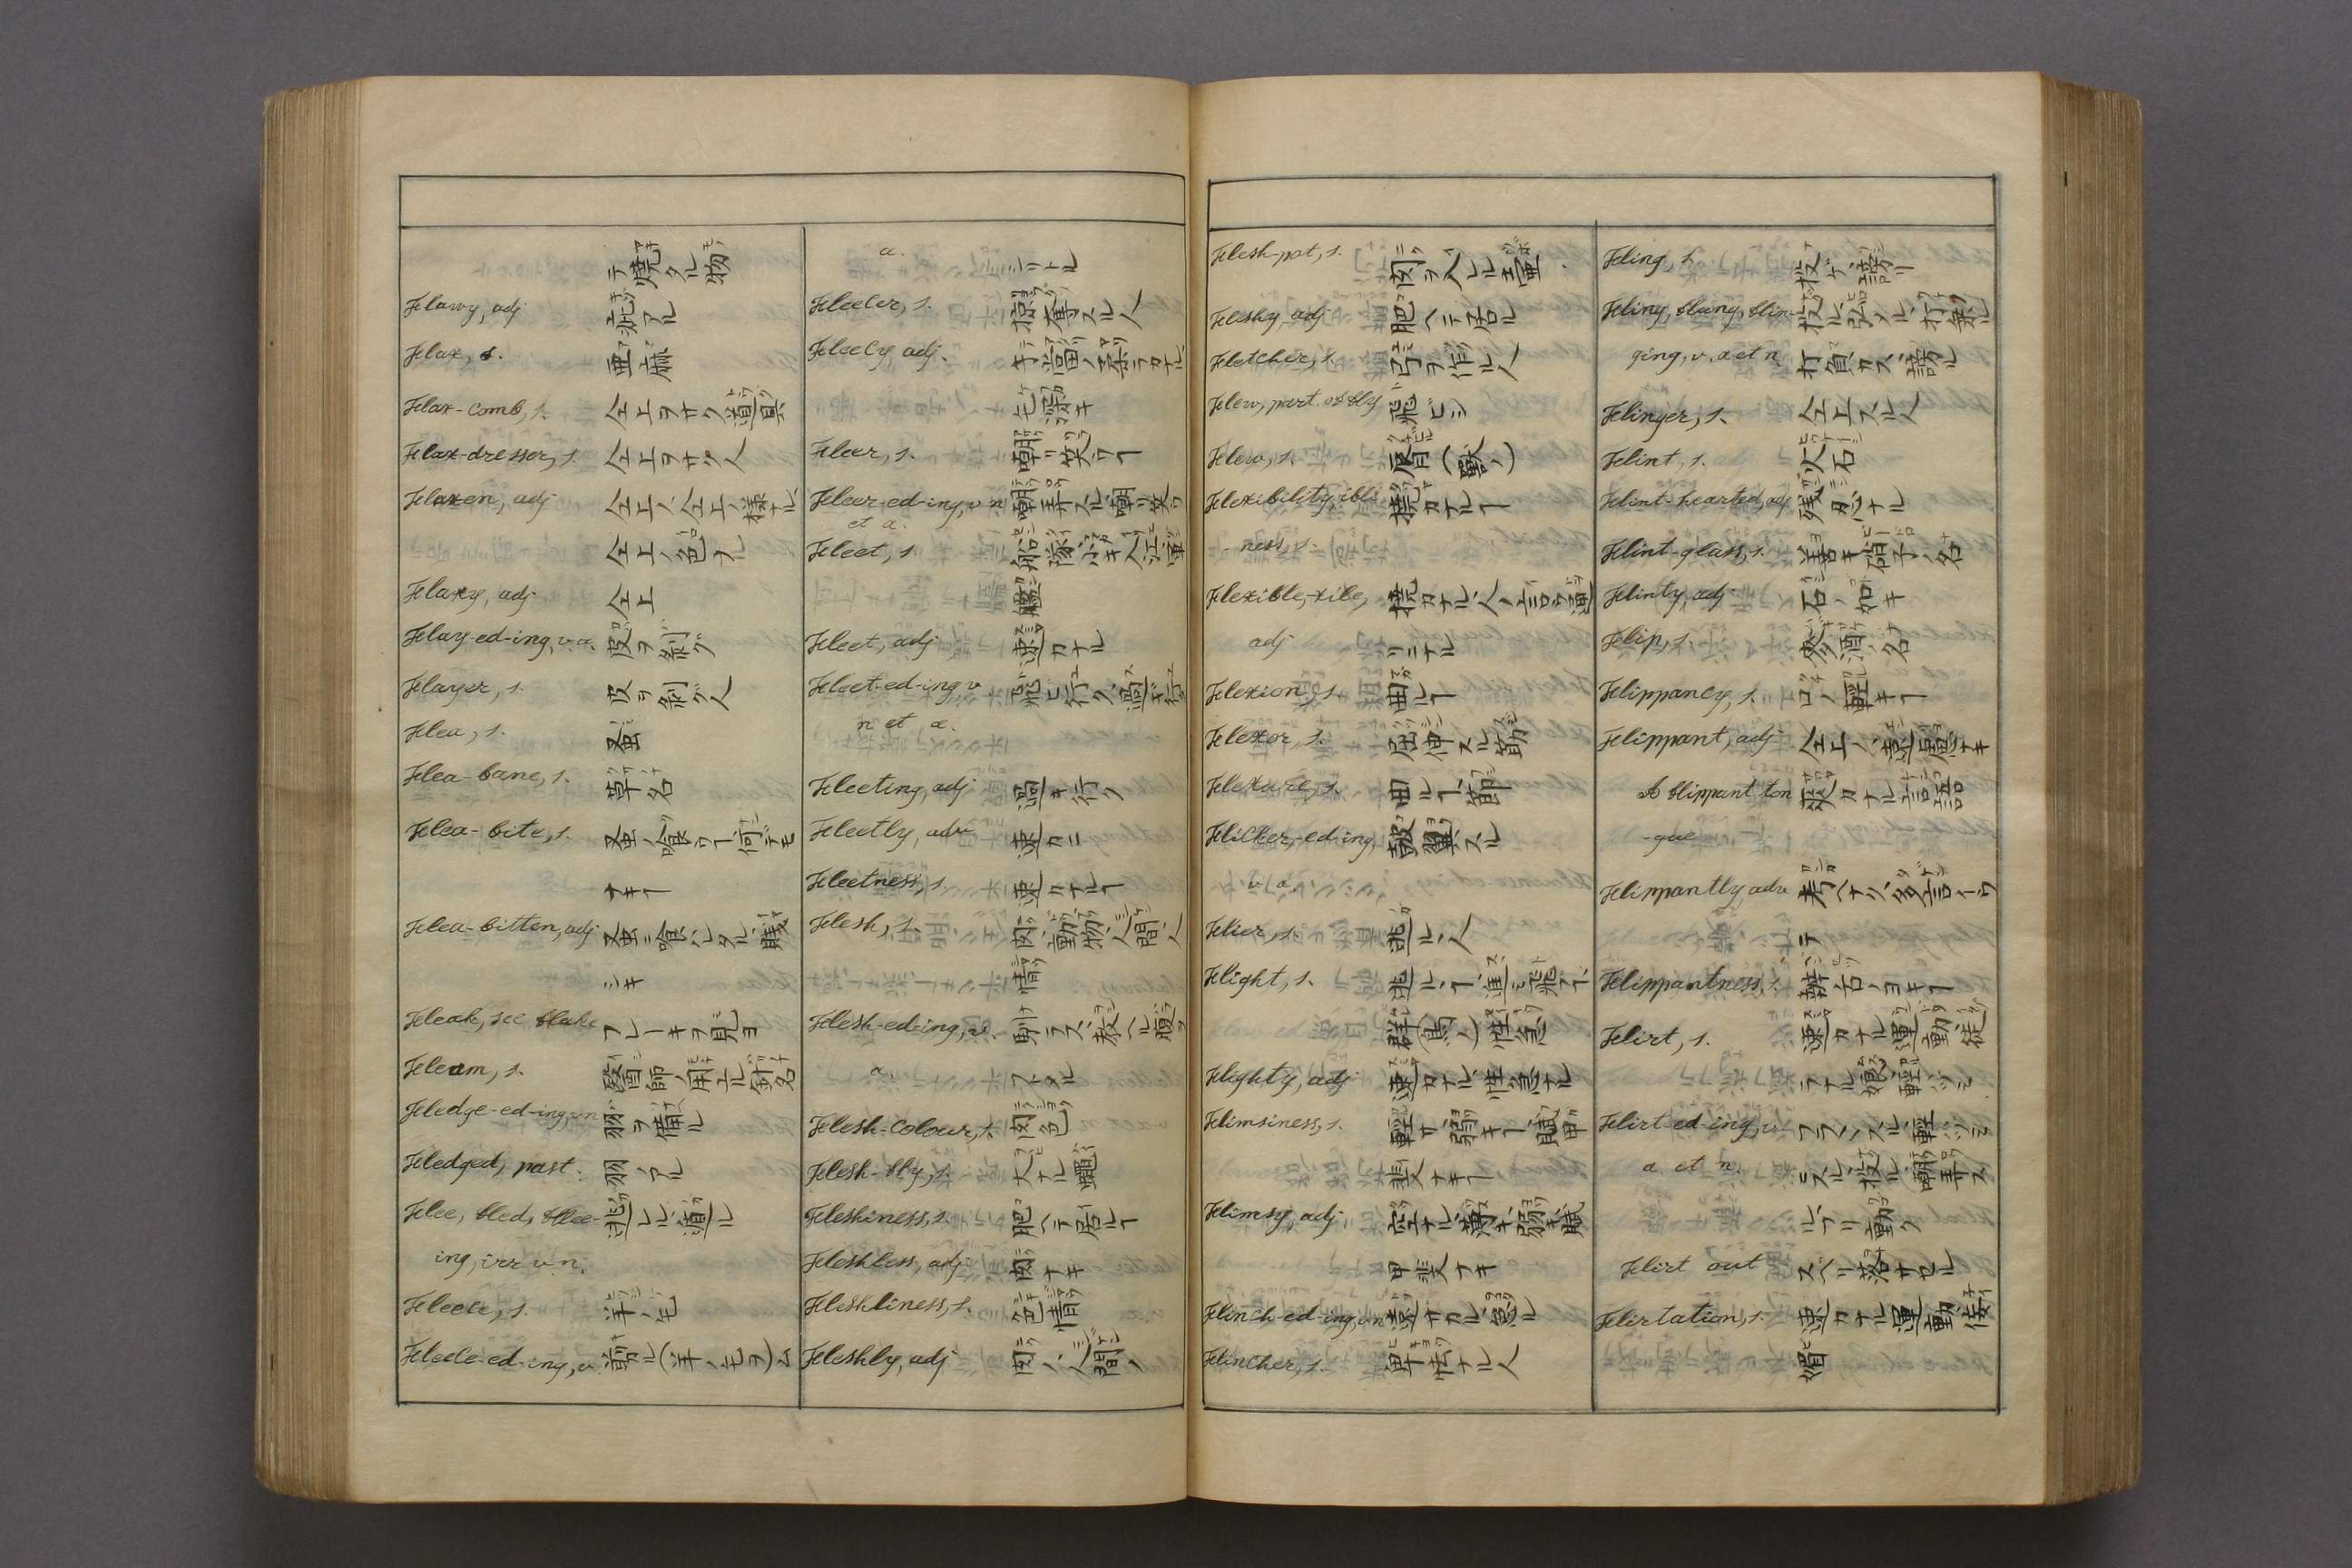 テ燒タル物
Flawy, adj 疵アル
Flax, s. 亜麻
Flax-comb, s. 仝上ヲサク道具
Flax-dresser, s. 仝上ヲサク人
Flaxen, adj 仝上ノ、仝上ノ様ナル、
仝上ノ色ノ
Flaxy, adj 仝上
Flay-ed-ing, v. a. 皮ヲ剝グ
Flayer, s. 皮ヲ剝グ人
Flea, s. 蚤
Flea-bane, s. 草ノ名
Flea-bite, s. 蚤ノ喰フ﹁、何デモ
ナキ﹁
Flea-bitten, adj 蚤ニ喰ハレタル、賤
シキ
Fleak, see flake フレーキヲ見ヨ
Fleam, s. 醫師ノ用ユル針ノ名
Fledge-ed-ing, v n 羽ヲ備ル
Fledged, past. 羽ノアル
Flee, fled, flee- 逃レル、遁ル
ing, irr v n.
Fleece, s. 羊ノ毛
Fleece-ed-ing, v. 剪ル(羊ノ毛ヲ)ム
a. シリトル
Fleecer, s. 掠奪スル人
Fleecy, adj.
毛深キ
Fleer, s. 嘲リ笑フ﹁
Fleer-ed-ing, v n 嘲弄スル、嘲リ笑フ
et a.
Fleet, s. 船隊、小キ入江、軍
艦
Fleet, adj 速カナル
Fleet-ed-ing, v 飛ビ行ク、過ギ行ク
n et a.
Fleeting, adj 過キ行ク
Fleetly, adv 速カニ
Fleetness, s. 速カナル﹁
Flesh, s. 肉、動物、人間、人
情
Flesh-ed-ing, v.
a.
Flesh-colour, s. 肉色
Flesh-fly, s. 大ナル蠅
Fleshiness, s. 肥ヘテ居ル﹁
Fleshless, adj 肉ナキ
Fleshliness, s. 色情
Fleshly, adj 肉ノ、人間ノ
Flesh-pot, s. 肉ヲ入レル壷
Fleshy, adj 肥ヘテ居ル
Fletcher, s. 弓ヲ作ル人
Flew, part. of fly 飛ビシ
Flew, s. 唇(獸ノ)
Flexibility, ible 撓カナル﹁
-ness, s.
Flexible, -xile, 撓カナル、人ノ言フ通
adj リニナル
Flexion, s. 曲ル﹁
Flexor, s. 屈伸スル筋
Flexure, s. 曲ル﹁、節
Flicker, -ed-ing, 鼓翼スル
v a.
Flier, s. 逃ル、人
Flight, s. 逃ル、﹁、進ミ飛フ﹁、
群(鳥ノ)性急
Flighty, adj 速カナル、性急ナル
Flimsiness, s. 軽サ、弱キ﹁、膩甲
斐ナキ﹁
Flimsy, adj 空ナル、薄キ、弱キ、膩
甲斐ナキ
Flinch-ed-ing, v n 遠サカル、怠ル
Flincher, s. 卑怯ナル人
Fling, s. 投ゲ、謗リ
Fling, flung, flin-
ging, v. a et n. 打負カス、謗ル
Flinger, s. 仝上スル人
Flint, s. 火石
Flint-hearted, adj 残忍ナル
Flint-glass, s. 善キ硝子ノ名
Flinty, adj 石ノ如キ
Flip, s. 麥酒ノ名
Flippancy, s. 口ノ輕キ﹁
Flippant, adj 仝上ノ、遠慮ナキ
A flippant ton カナル言語
-gue
Flippantly, adv 考ヘナク、多言﹁ヲ
テ
Flippantness, s. 辨舌ノヨキ﹁
Flirt, s. 速カナル運動、徒
Flirt-ed-ing, v.
a. et n. ラスル、投ル、嘲弄ス
ル、フリ動ク
Flirt out スベリ落サセル
Flirtation, s. 速カナル運動、徒